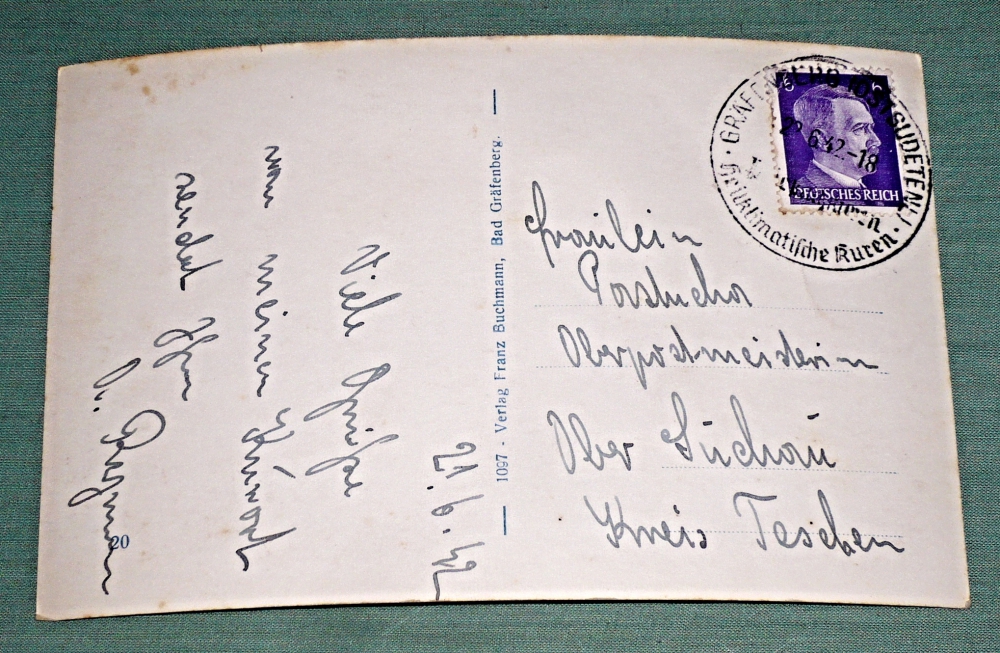 21.6.42
Viele Grüße
von meinem Kurort
sendet Ihnen
20
1097 - Verlag Franz Buchmann, Bad Gräfenberg.
6 6
DEUTSCHES REICH
GRÄFENBERG (OSTSUDETENL)
6.42.-18
Heilklimatische Kuren.
Fräulein
Oberpostmeisterin
Ober Suchau
Kreis Teschen